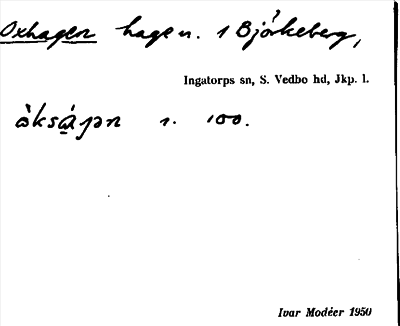 Oxhagen hage u. 1 Björkeberg,
Ingatorps sn, S. Vedbo hd, Jkp. l.
r. 100.
Ivar Modéer 1950